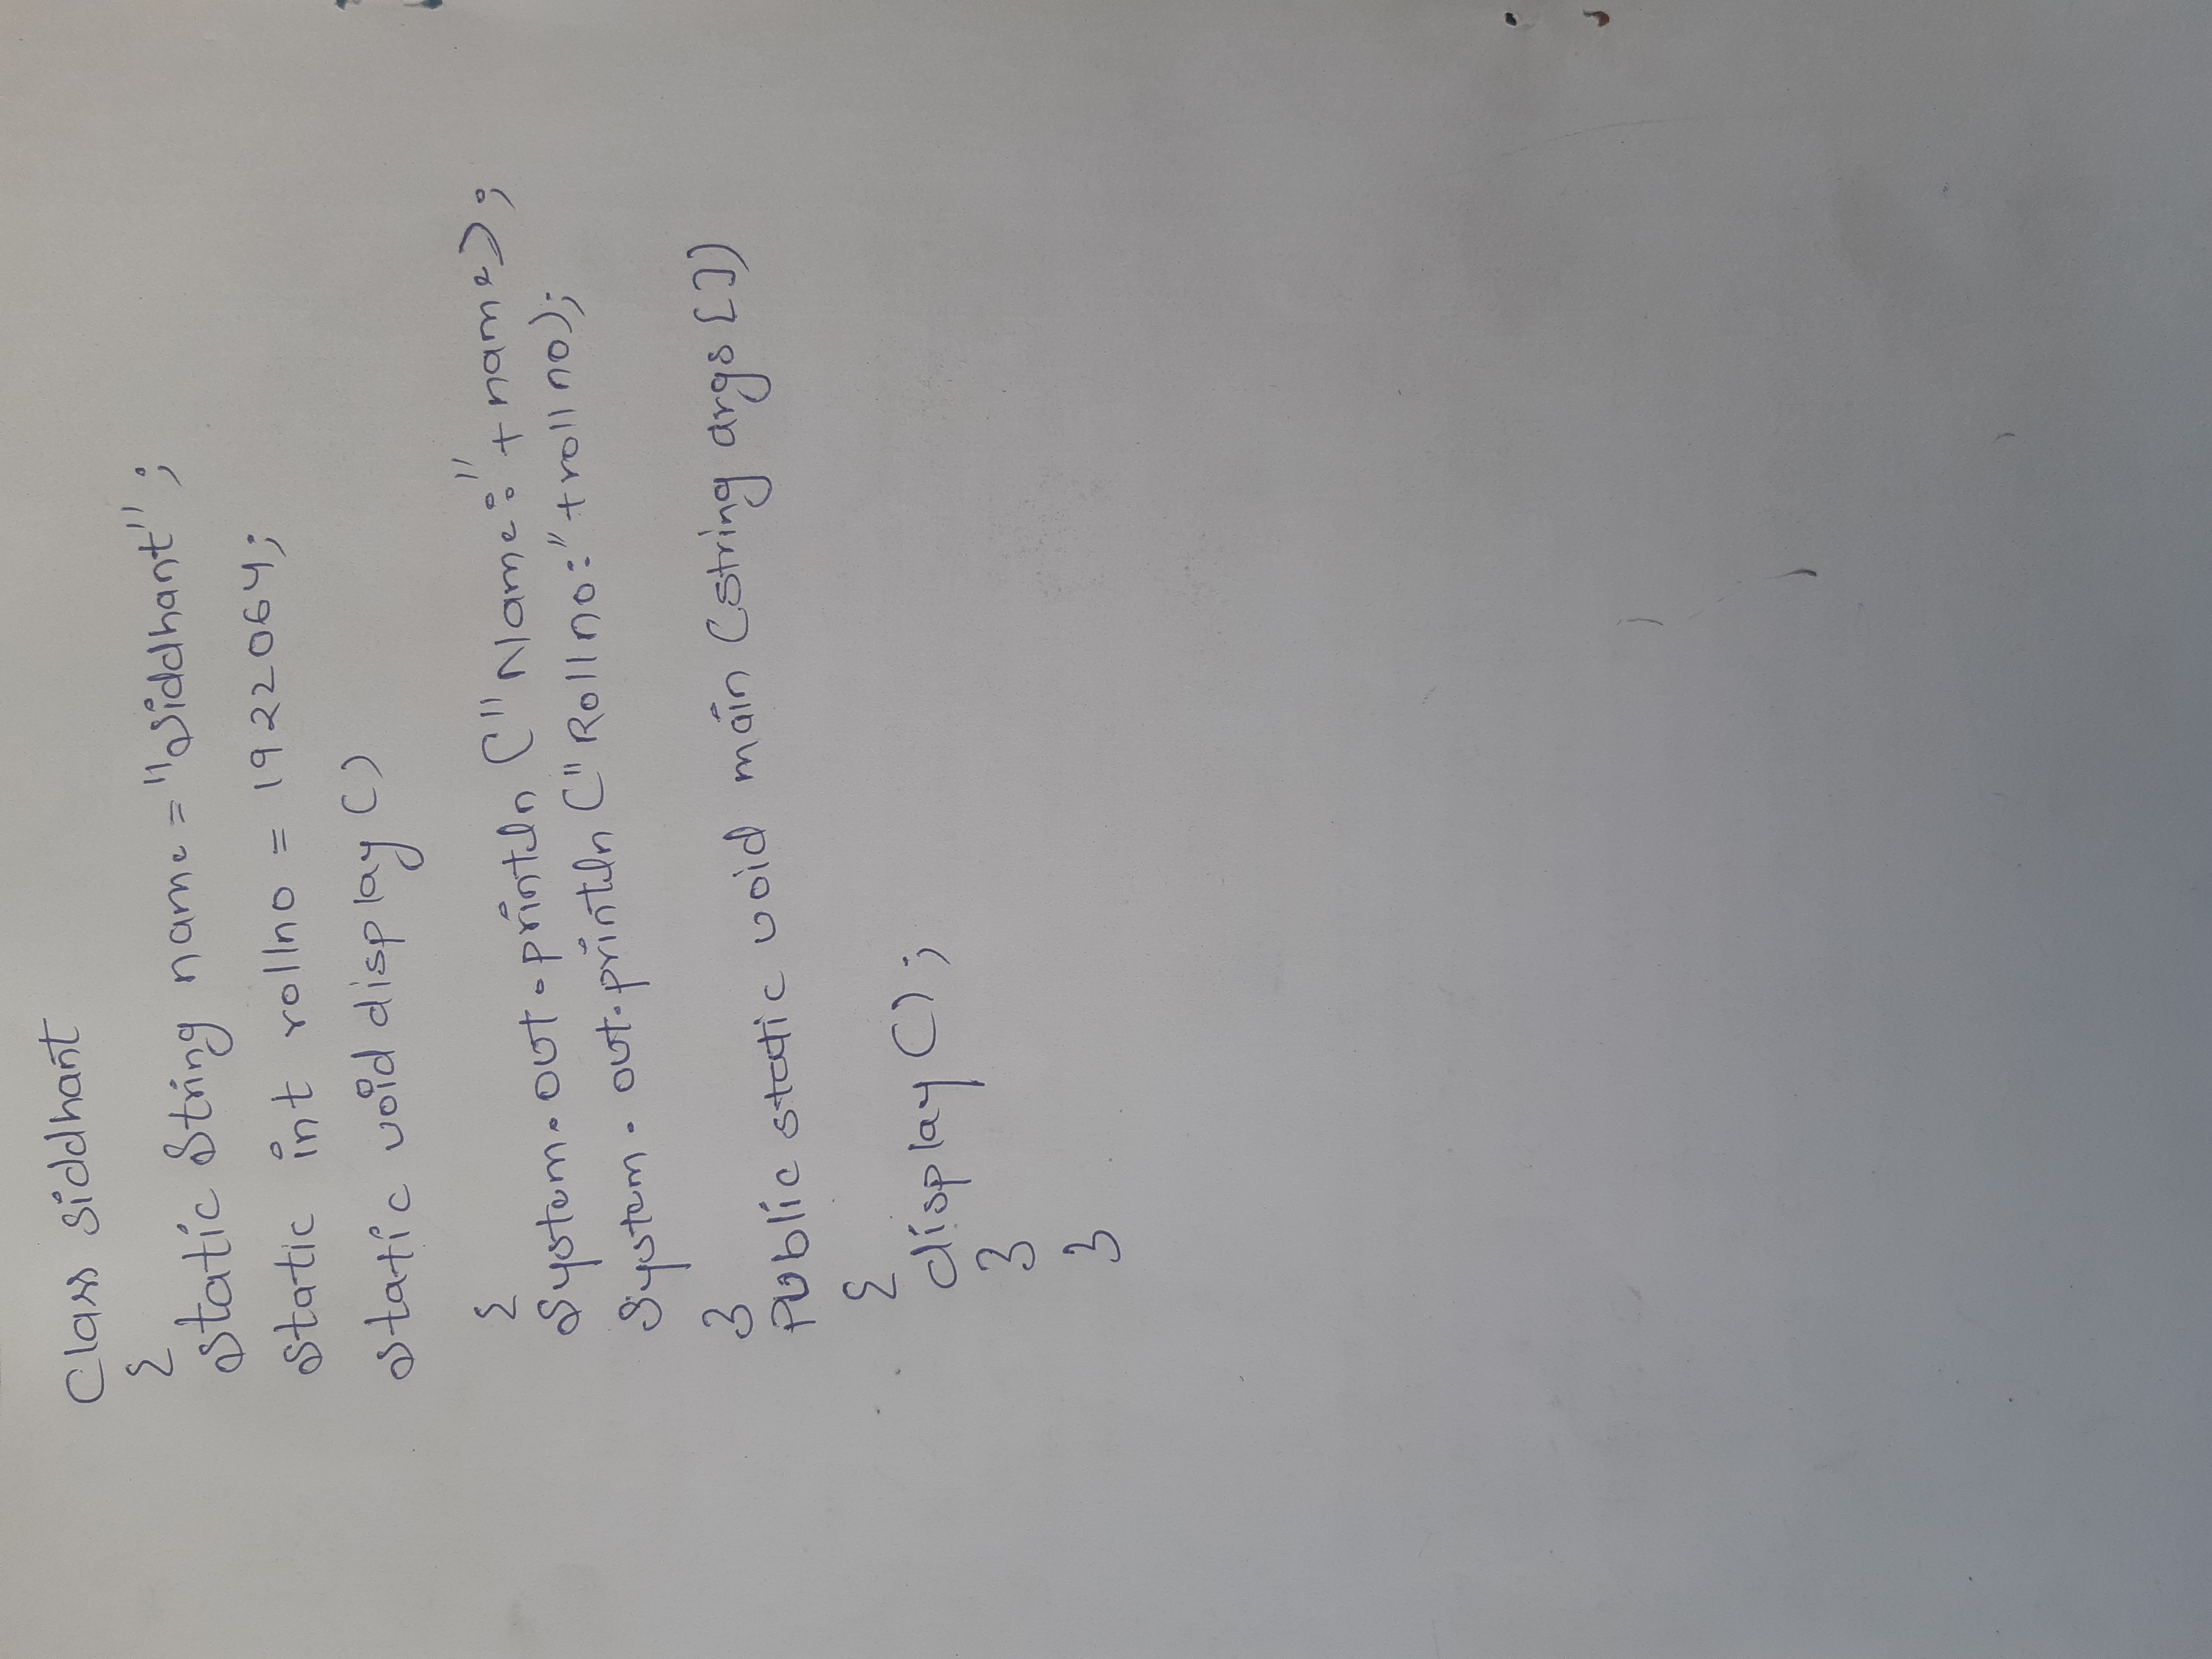 Class siddhant
{
static String name = "Siddhant";
static int rollno = 1922064;
static void display ()
{
System.out.println ("Name:"+name);
System.out.println ("Rollno:"+rollno);
}
Public static void main (string args [])
{
display ();
}
}